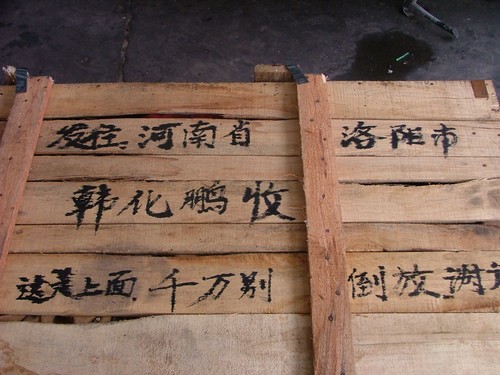 发往河南省 洛阳市
韩化鹏收
这是上面千万别 倒放